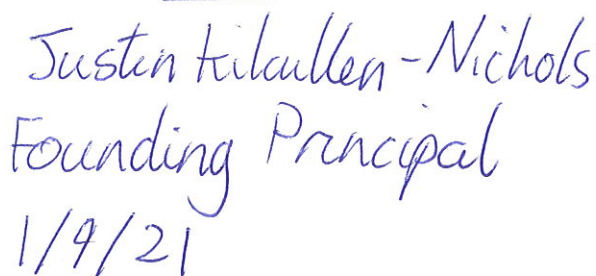 Justin Kilcullen-Nichols
Founding Principal
1/9/21